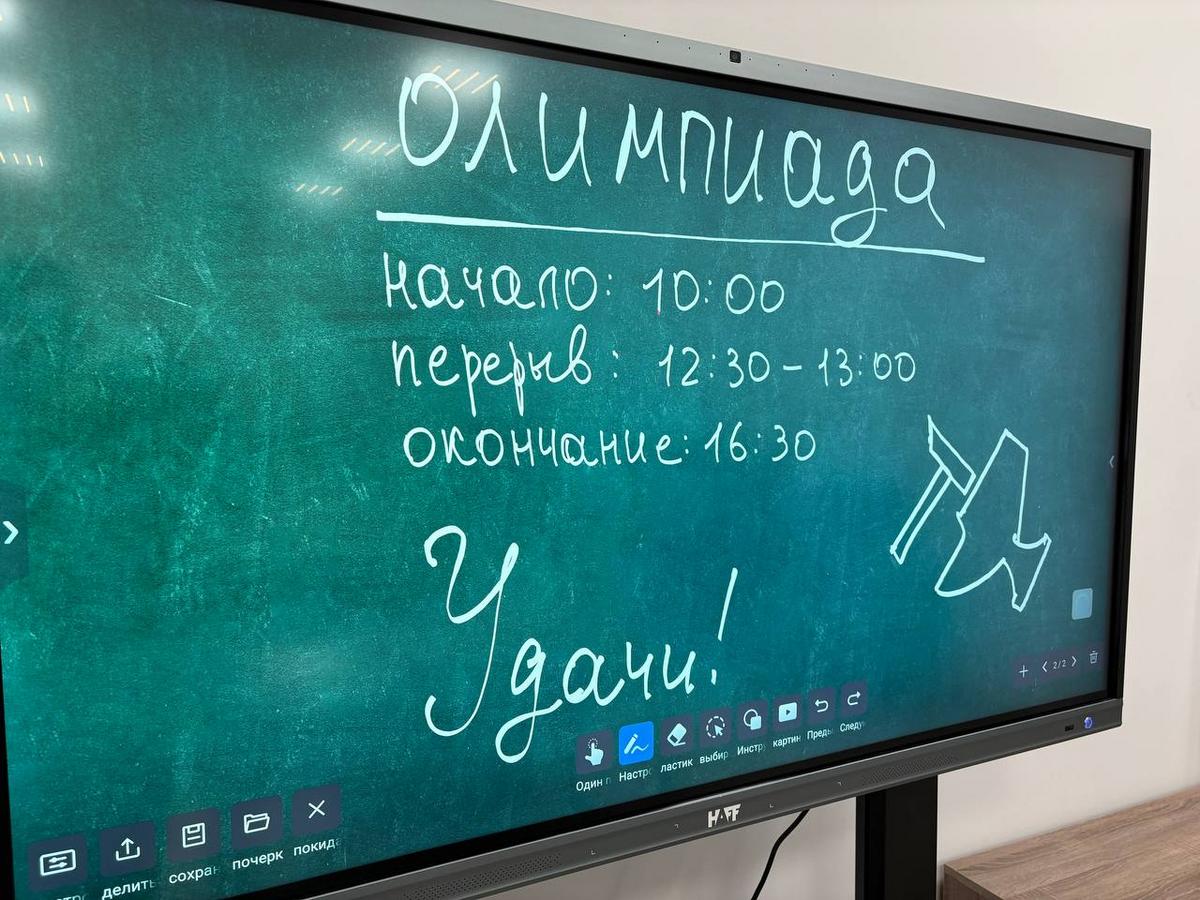 Олимпиада
начало: 10:00
перерыв: 12:30 – 13:00
окончание: 16:30
Удачи!
2/2
Один п
Настро
ластик
выбир
Инстру
картин
Преды
Следу
делить
сохран
почерк
покида
HAFF